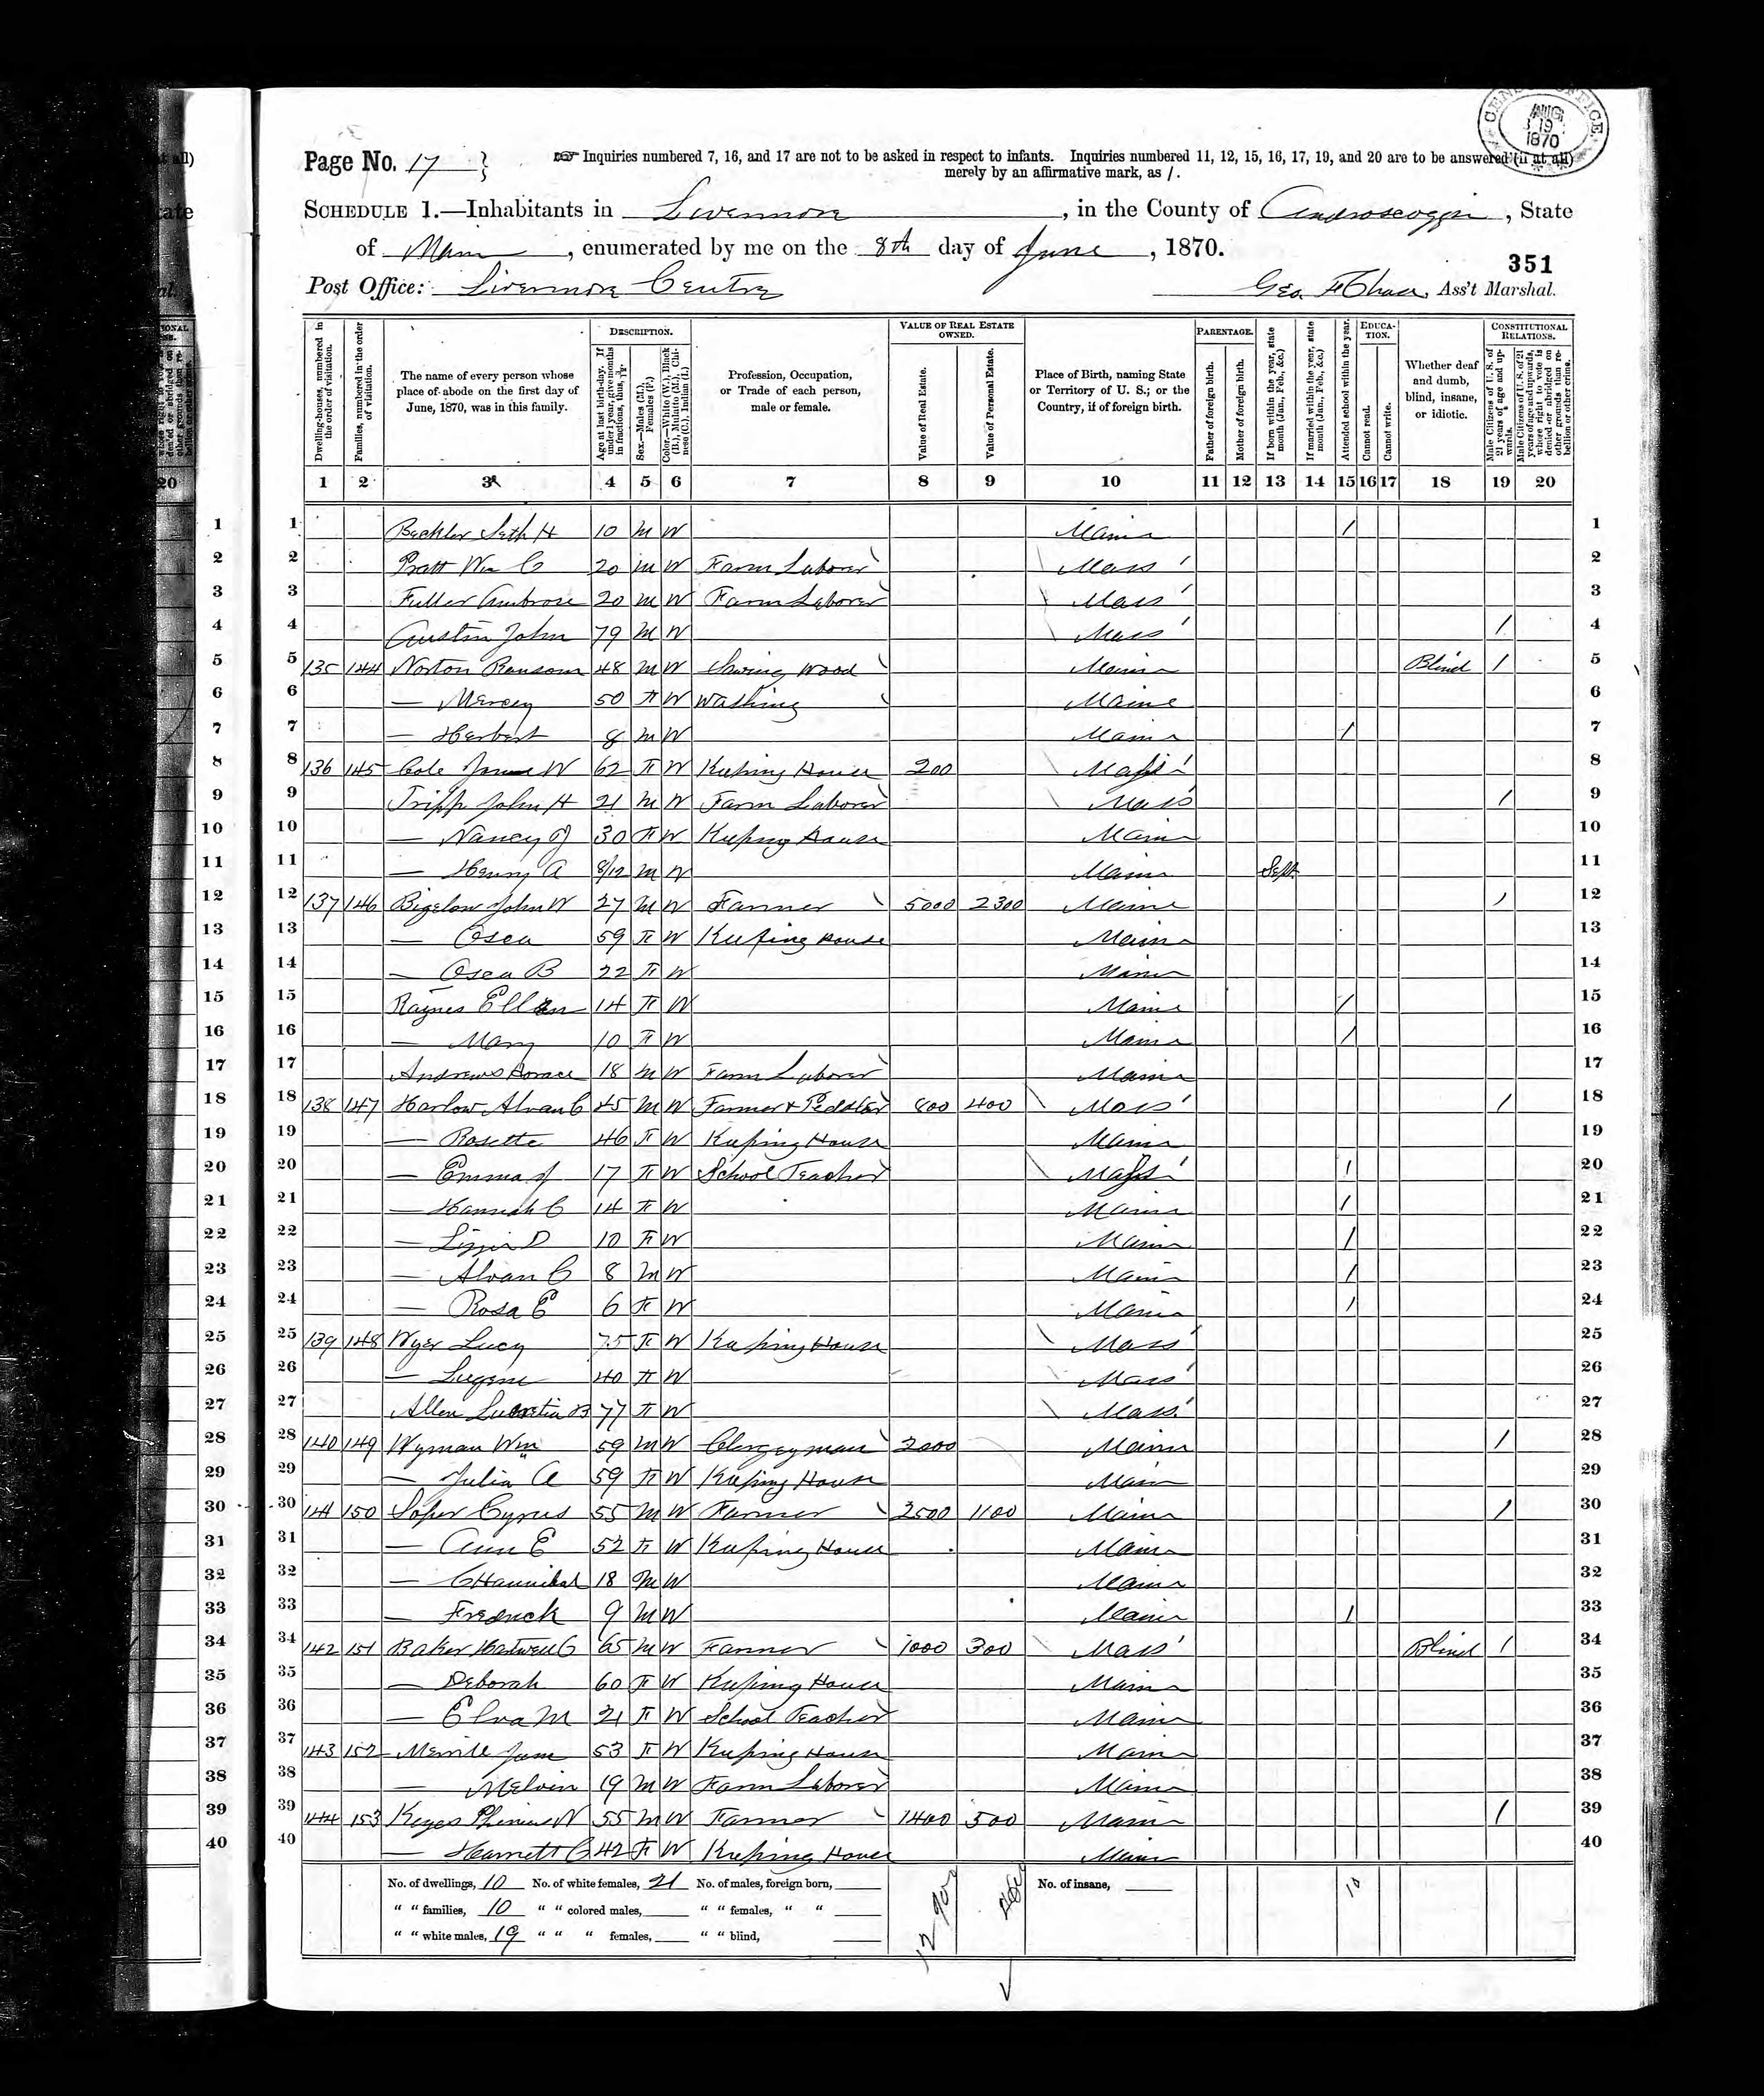 CENSUS OFFICE AUG 19 1870
Page No. 17 } Inquiries numbered 7, 16, and 17 are not to be asked in respect to infants. Inquiries numbered 11, 12, 15, 16, 17, 19, and 20 are to be answered (if at all)
merely by an affirmative mark, as /.
SCHEDULE 1.—Inhabitants in Livermore, in the County of Androscoggin, State
of Maine, enumerated by me on the 8th day of June, 1870.
351
Post Office: Livermore Centre Geo. F Chase, Ass't Marshal.
Dwelling-houses, numbered in the order of visitation.
Families, numbered in the order of visitation.
The name of every person whose place of abode on the first day of June, 1870, was in this family.
DESCRIPTION.
Age at last birth-day. If under 1 year, give months in fractions, thus, 3/12.
Sex.—Males (M.), Females (F.)
Color.—White (W.), Black (B.), Mulatto (M.), Chinese (C.), Indian (I.)
Profession, Occupation, or Trade of each person, male or female.
VALUE OF REAL ESTATE OWNED.
Value of Real Estate.
Value of Personal Estate.
Place of Birth, naming State or Territory of U. S.; or the Country, if of foreign birth.
PARENTAGE.
Father of foreign birth.
Mother of foreign birth.
If born within the year, state month (Jan., Feb., &c.)
If married within the year, state month (Jan., Feb., &c.)
Attended school within the year.
EDUCATION.
Cannot read.
Cannot write.
Whether deaf and dumb, blind, insane, or idiotic.
CONSTITUTIONAL RELATIONS.
Male Citizens of U. S. of 21 years of age and upwards.
Male Citizens of U. S. of 21 years of age and upwards, whose right to vote is denied or abridged on other grounds than rebellion or other crime.
1 2 3 4 5 6 7 8 9 10 11 12 13 14 15 16 17 18 19 20
1 Beckler Seth H 10 M W Maine / 1
2 Pratt Wm C 20 M W Farm Laborer Mass 2
3 Fuller Ambrose 20 M W Farm Laborer Mass 3
4 Austin John 79 M W Mass / 4
5 135 144 Norton Ransom 48 M W Sawing Wood Maine Blind / 5
6 — Mercy 50 F W Washing Maine 6
7 — Herbert 8 M W Maine / 7
8 136 145 Cole W 62 F W Keeping House 200 Mass 8
9 Tripp John H 21 M W Farm Laborer Mass / 9
10 — Nancy J 30 F W Keeping House Maine 10
11 — Henry A 8/12 M W Maine Sept 11
12 137 146 Bigelow John W 27 M W Farmer 5000 2300 Maine / 12
13 — Osca 59 F W Keeping House Maine 13
14 — Osca B 22 F W Maine 14
15 Raynes Ellen 14 F W Maine / 15
16 — Mary 10 F W Maine / 16
17 Andrews Horace 18 M W Farm Laborer Maine 17
18 138 147 Harlow Alvan C 45 M W Farmer & Peddler 800 400 Mass / 18
19 — Rosette 46 F W Keeping House Maine 19
20 — Emma J 17 F W School Teacher Mass / 20
21 — Hannah C 14 F W Maine / 21
22 — Lizzie D 10 F W Maine / 22
23 — Alvan C 8 M W Maine / 23
24 — Rosa E 6 F W Maine / 24
25 139 148 Wyer Lucy 75 F W Keeping House Mass 25
26 — Eugene 40 F W Mass 26
27 Allen Lucretia B 77 F W Mass 27
28 140 149 Wyman Wm 59 M W Clergyman 2000 Maine / 28
29 — Julia A 59 F W Keeping House Maine 29
30 141 150 Soper Cyrus 55 M W Farmer 2500 1100 Maine / 30
31 — Ann E 52 F W Keeping House Maine 31
32 — C Hannibal 18 M W Maine 32
33 — Fredrick 9 M W Maine / 33
34 142 151 Baker Hartwell C 65 M W Farmer 1000 300 Mass Blind / 34
35 — Deborah 60 F W Keeping House Maine 35
36 — Elva M 21 F W School Teacher Maine 36
37 143 152 Merrill Jane 53 F W Keeping House Maine 37
38 — Melvin 19 M W Farm Laborer Maine 38
39 144 153 Keyes Phineus N 55 M W Farmer 1400 500 Maine / 39
40 — Harriett C 42 F W Keeping House Maine 40
No. of dwellings, 10 No. of white females, 21 No. of males, foreign born, No. of insane, 10
" " families, 10 " " colored males, " " females, " "
" " white males, 19 " " " females, " " blind,